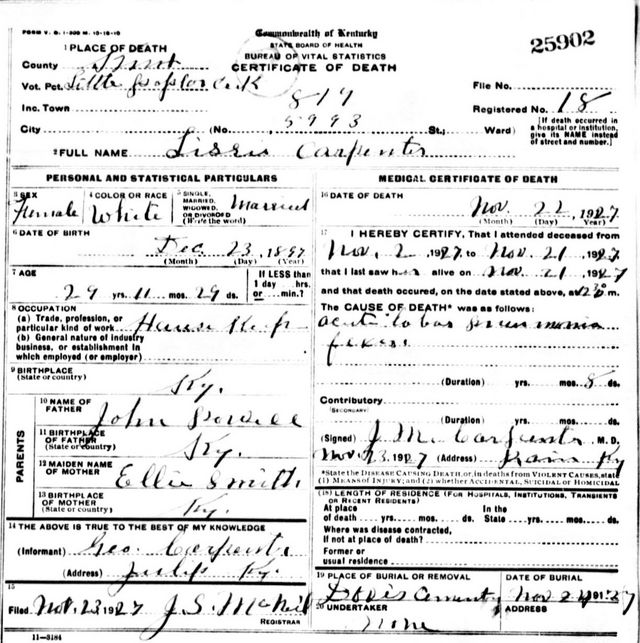 FORM V. S. 1-300 M 10-10-10
Commonwealth of Kentucky
STATE BOARD OF HEALTH
BUREAU OF VITAL STATISTICS
CERTIFICATE OF DEATH
25902
1 PLACE OF DEATH
County
Vot. Pct. Little
File No.
Inc. Town 819
Registered No. 18
City (No. 5993 St., Ward)
[If death occurred in a hospital or institution, give its NAME instead of street and number.]
2 FULL NAME Carpenter
PERSONAL AND STATISTICAL PARTICULARS
3 SEX Female
4 COLOR OR RACE White
5 SINGLE, MARRIED, WIDOWED, OR DIVORCED (Write the word) Married
6 DATE OF BIRTH
Dec 23, 1897
(Month) (Day) (Year)
7 AGE
29 yrs. 11 mos. 29 ds.
If LESS than 1 day hrs. or min.?
8 OCCUPATION
(a) Trade, profession, or particular kind of work
(b) General nature of industry business, or establishment in which employed (or employer)
9 BIRTHPLACE
(State or country) Ky.
PARENTS
10 NAME OF FATHER John
11 BIRTHPLACE OF FATHER (State or country) Ky.
12 MAIDEN NAME OF MOTHER Ellie Smith
13 BIRTHPLACE OF MOTHER (State or country) Ky.
14 THE ABOVE IS TRUE TO THE BEST OF MY KNOWLEDGE
(Informant) Geo. Carpenter
(Address) Julip Ky.
15
Filed Nov. 23, 1927 J. S. McNeil
REGISTRAR
11-3184
MEDICAL CERTIFICATE OF DEATH
16 DATE OF DEATH
Nov. 22, 1927
(Month) (Day) (Year)
17 I HEREBY CERTIFY, That I attended deceased from
Nov. 2, 1927 to Nov. 21, 1927
that I last saw her alive on Nov. 21, 1927
and that death occured, on the date stated above, at m.
The CAUSE OF DEATH* was as follows:
acute lobar pneumonia
(Duration) yrs. mos. 8 ds.
Contributory
(SECONDARY)
(Duration) yrs. mos. ds.
(Signed) J. M. Carpenter M. D.
Nov. 23, 1927 (Address) Ky
*State the DISEASE CAUSING DEATH, or, in deaths from VIOLENT CAUSES, state (1) MEANS OF INJURY; and (2) whether ACCIDENTAL, SUICIDAL OR HOMICIDAL
(18) LENGTH OF RESIDENCE (FOR HOSPITALS, INSTITUTIONS, TRANSIENTS OR RECENT RESIDENTS)
At place of death yrs. mos. ds. In the State yrs. mos. ds.
Where was disease contracted, If not at place of death?
Former or usual residence
19 PLACE OF BURIAL OR REMOVAL
DATE OF BURIAL
Nov 24
20 UNDERTAKER
none
ADDRESS